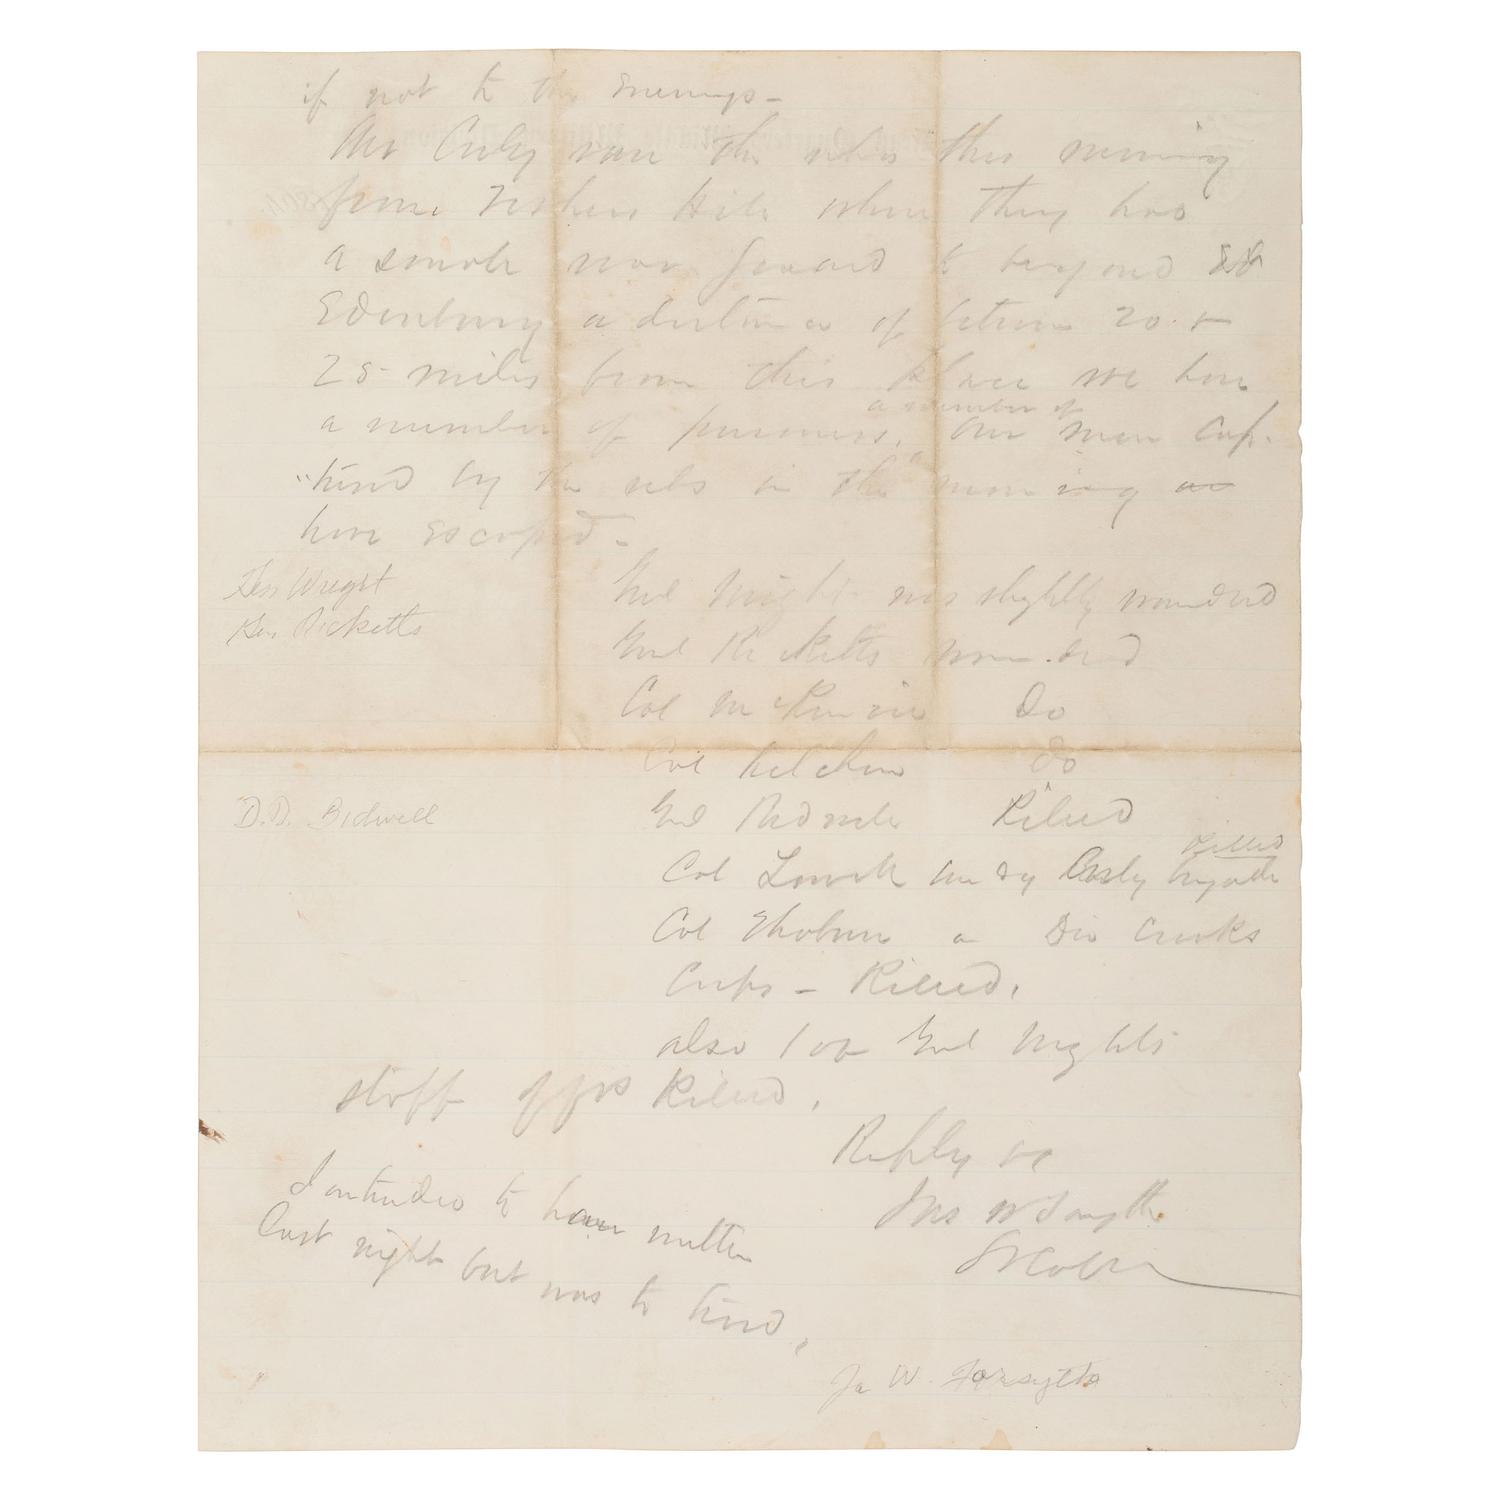 if not to the Evenings -
the Cvly ran the rebs this morning
from Fishers Hill where they had
a small rear guard to beyond
Edenburg a distance of between 20 &
25 miles from this place we have
a number of prisoners, a number of our men cap-
"tured by the rebs in the morning
have escaped -
Gen Wright
Genl Wright was slightly wounded
Gen. Ricketts
Genl Ricketts wounded
Col McKenzie Do
Col Kitchen do
D.D. Bidwell
Genl Killed
killed
Col Lowell Comdg Cvly brigade
Col Thoburn a Div Crooks
Corps - Killed.
also 1 on Genl Wrights
staff offrs Killed.
Resply &c
I intended to have written
Last night but was to tired.
Jas W Forsyth
Lt Col
Ja W. Forsyth